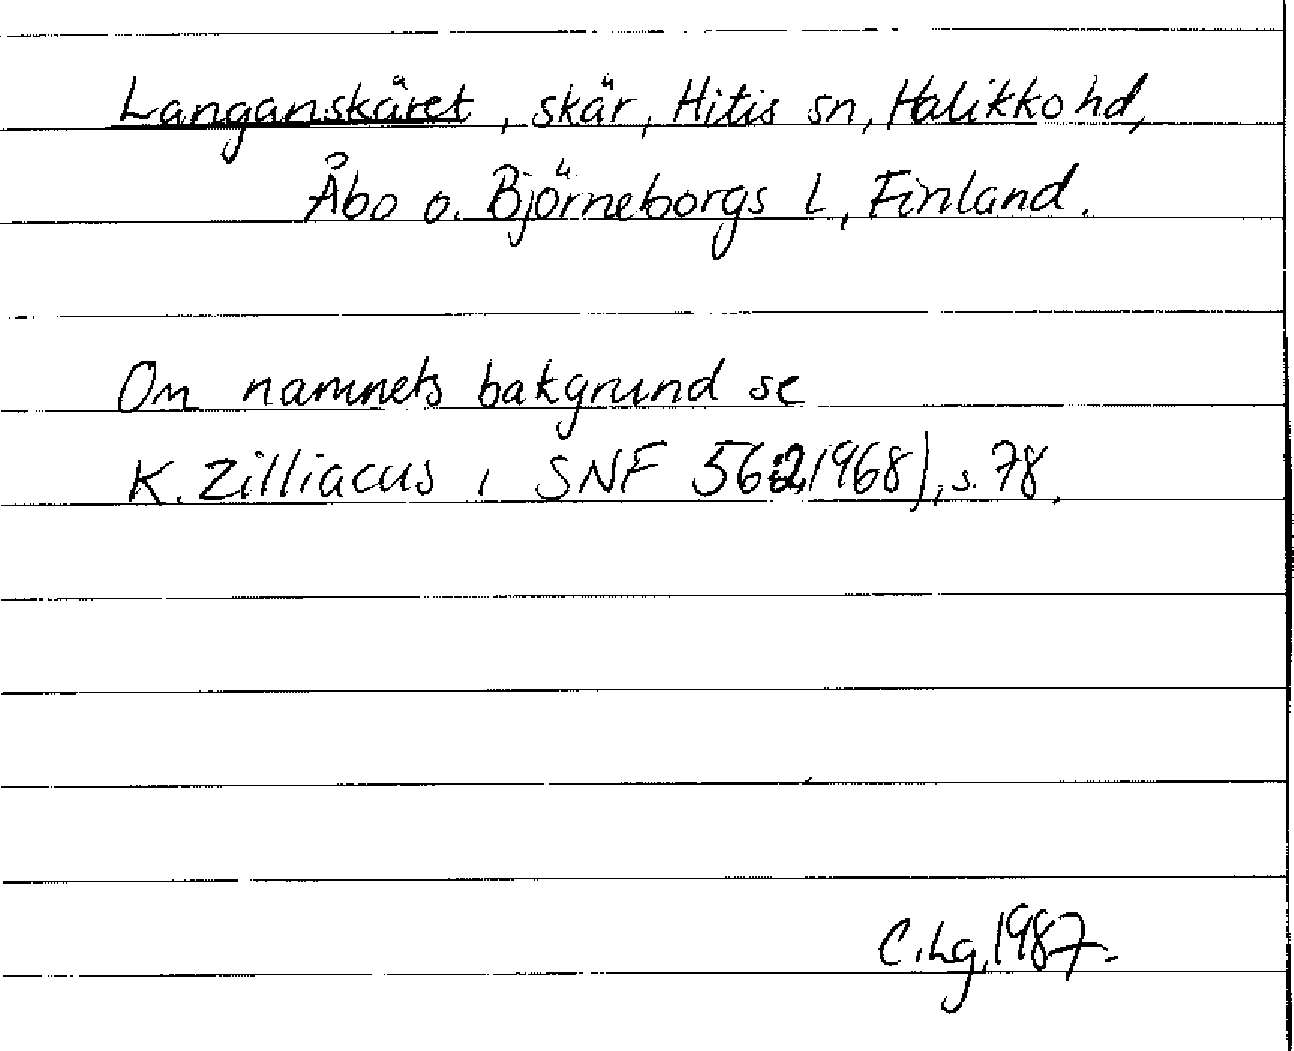 Langanskäret, skär, Hitis sn, Halikko hd,
Åbo o. Björneborgs L, Finland.
Om namnets bakgrund se
K. Zilliacus i SNF 56(1968), s. 78.
C.Lg.1987.